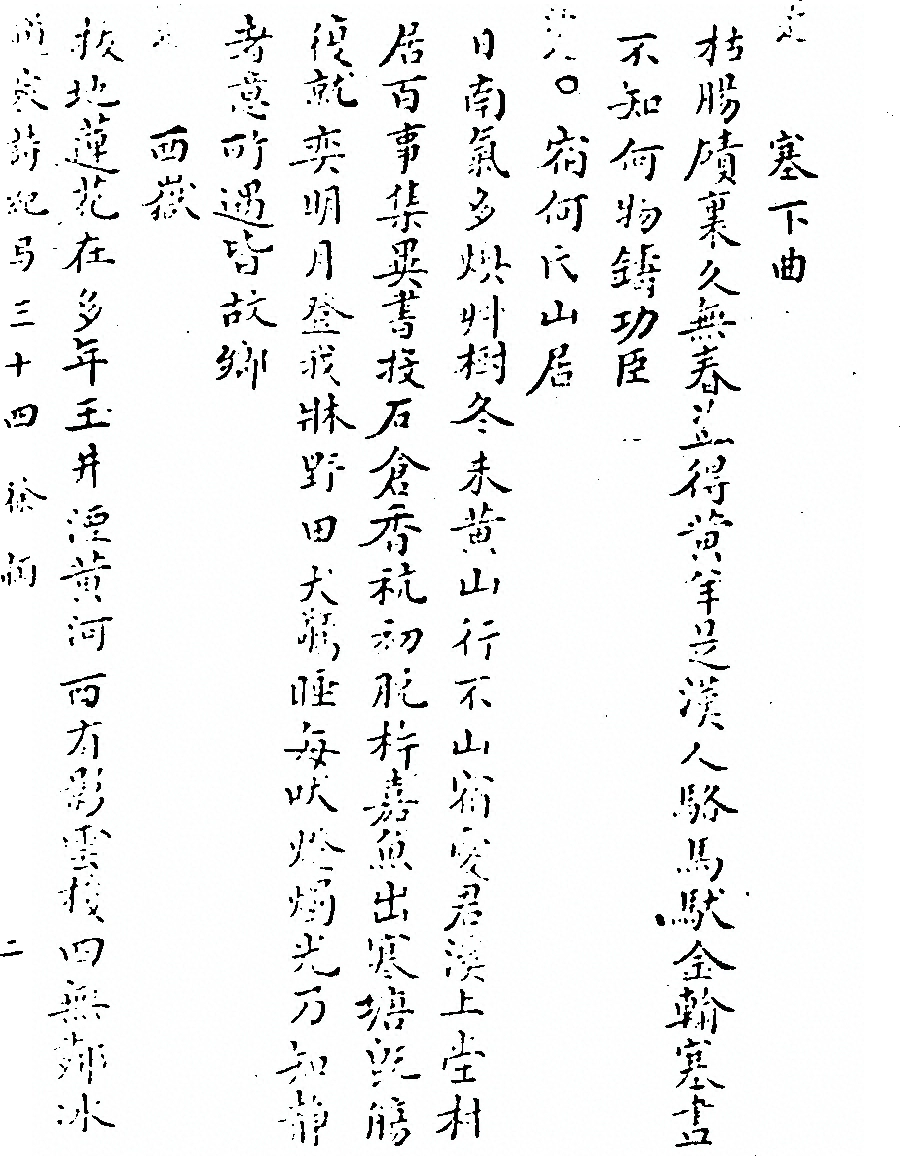 塞下曲
枯腸磧裏久無春並得黄羊是漢人駱馬馱金翰塞盡
不知何物鑄功臣
○宿何氏山居
日南氣多燠艸樹冬未黄山行不山宿愛君溪上堂村
居百事集異書授石倉香秔初脱杵嘉魚出寒塘既觴
復就奕明月登我牀野田犬驚睡每吠燈燭光乃知静
者意所遇皆故鄉
西嶽
拔地蓮花在多年玉井湮黄河西有影雲棧四無鄰冰
詩紀 三十四 徐𤊹 二